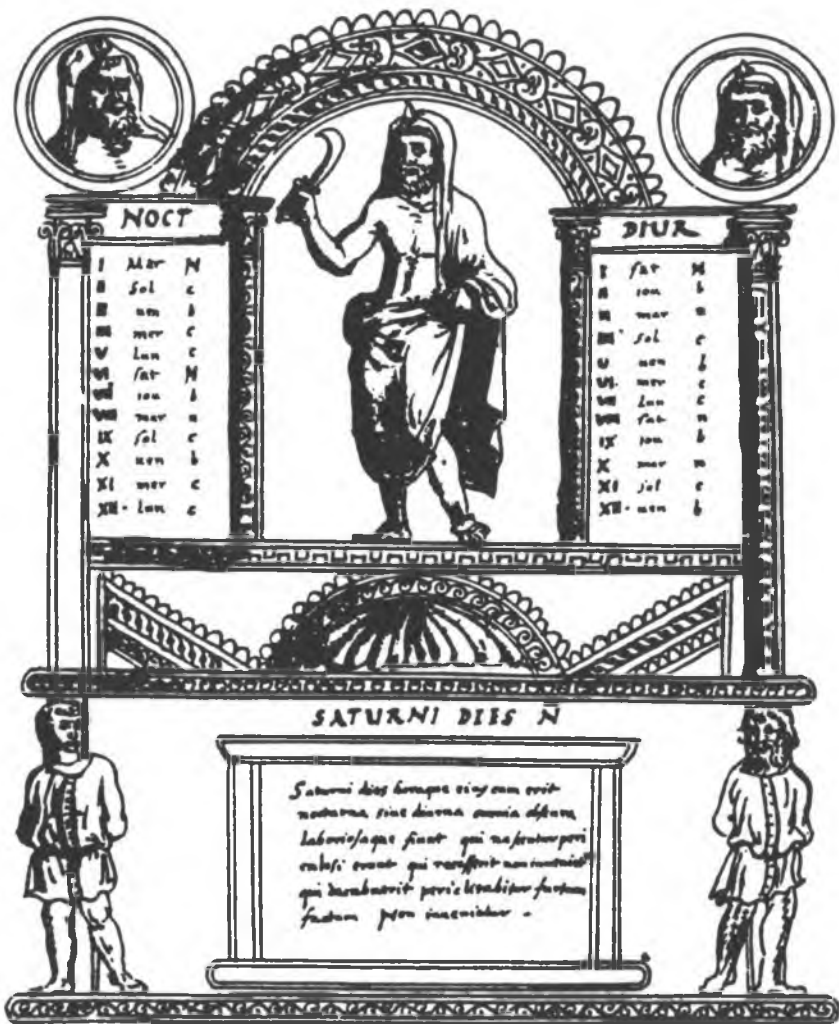 NOCT
I Mar N
II Sol c
III uen b
IIII mer c
V lun c
VI sat N
VII iou b
VIII mar n
IX sol c
X uen b
XI mer c
XII lun c
DIUR
I sat N
II iou b
III mar n
IIII sol c
V uen b
VI mer c
VII lun c
VIII sat n
IX iou b
X mar n
XI sol c
XII uen b
SATURNI DIES N
Saturni dies horaque eius cum erit
nocturna siue diurna omnia obscura
laboriosaque fiunt qui nascentur peri
culosi erunt qui recesserit non
qui decubuerit periclitabitur furtum
factum non inuenietur